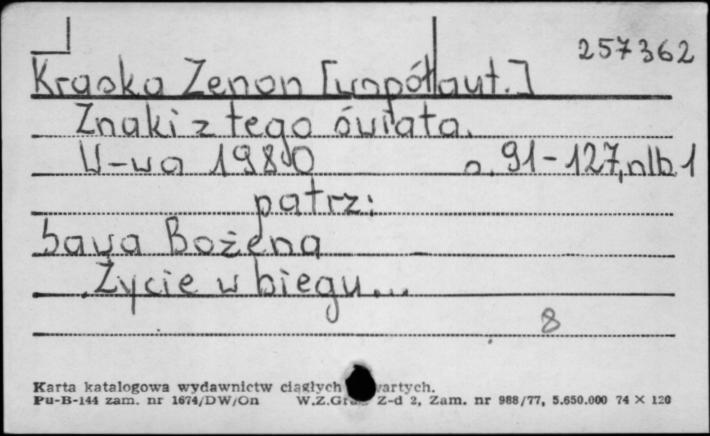 257362
Kraska Zenon [współaut.]
Znaki z tego świata.
W-wa 1980 s. 91-127, nlb. 1
patrz:
Sawa Bożena
Życie w biegu...
8
Karta katalogowa wydawnictw ciągłych
Pu-B-144 zam. nr 1674/DW/On W.Z.Graf. Z-d 2, Zam. nr 988/77, 5.650.000 74 × 120